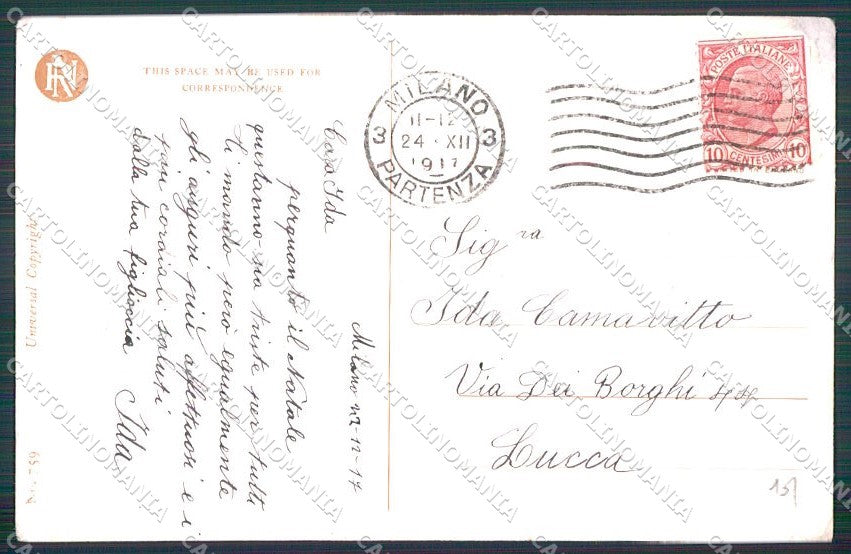 RN
THIS SPACE MAY BE USED FOR
CORRESPONDENCE
Milano 12-17
Cara Ida
perquanto il Natale
quest'anno sia triste per tutti
ti mando però egualmente
gli auguri più affettuosi e i
più cordiali saluti
dalla tua figlioccia Ida
Universal Copyright
MILANO
PARTENZA
3
3
11-12
24 · XII
POSTE ITALIANE
10 CENTESIMI 10
Sig ra
Ida Camavitto
Via Dei Borghi 44
Lucca
15
CARTOLINOMANIA